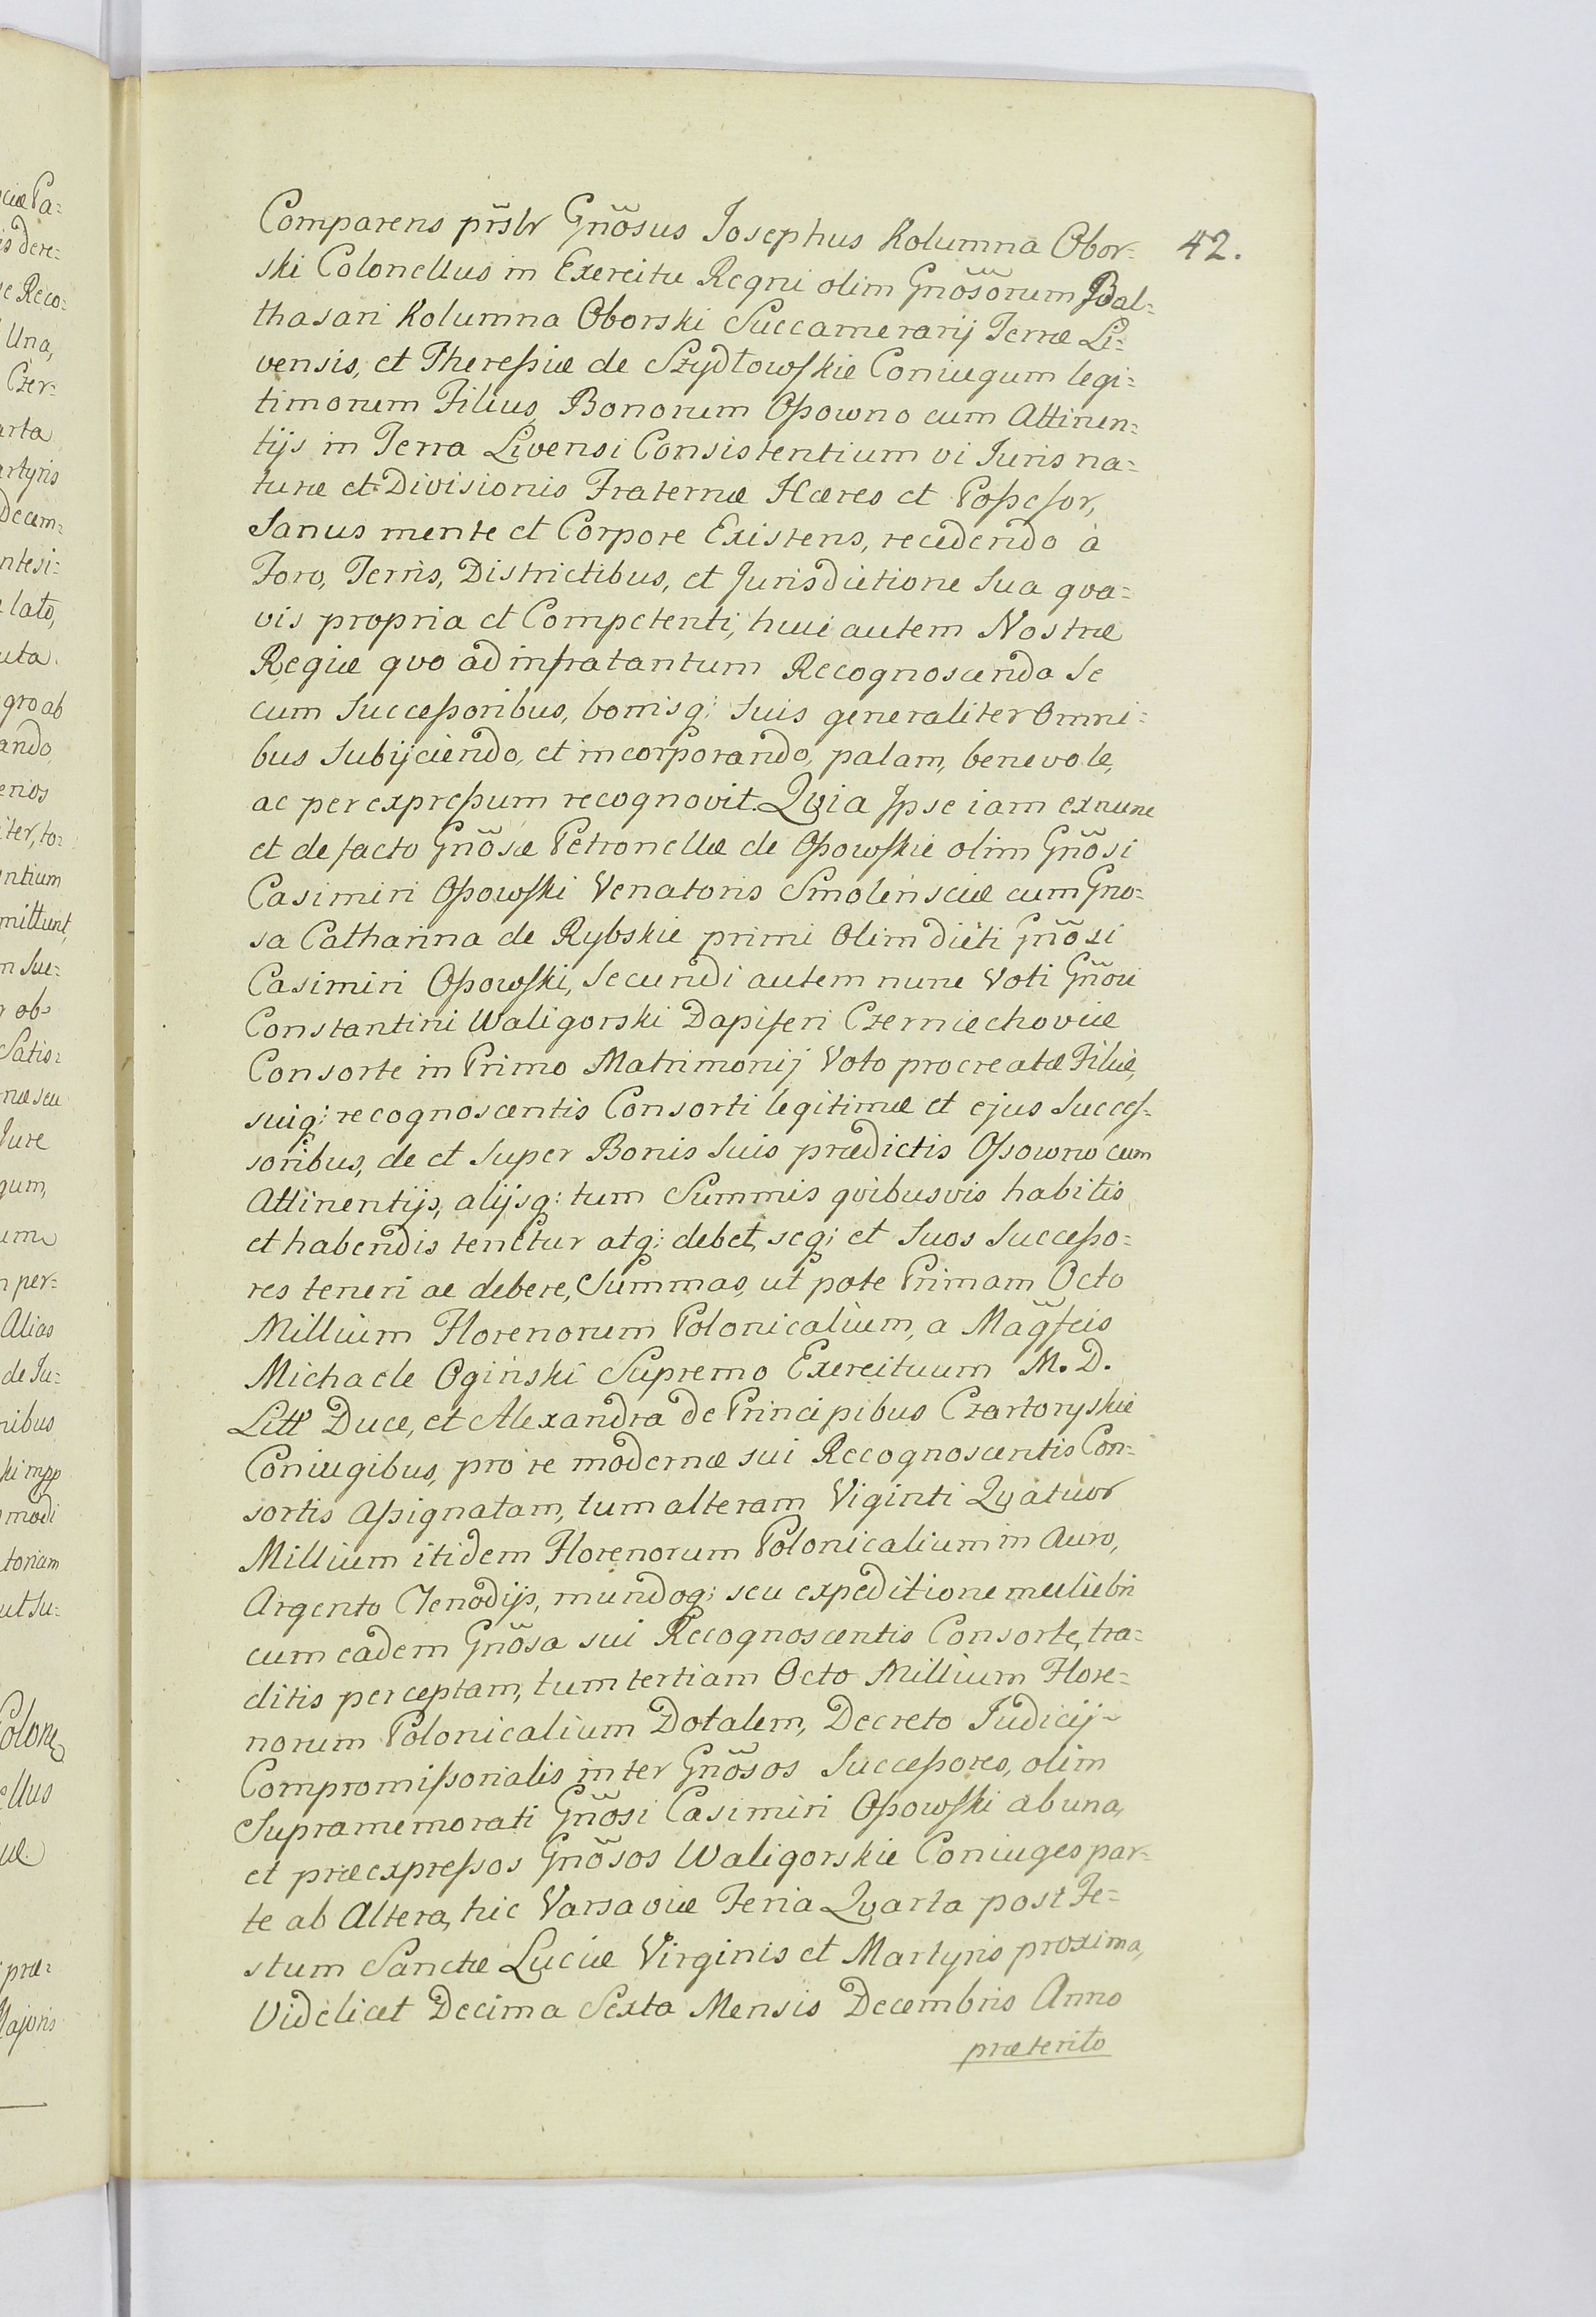 42.
Comparens pr̃slr Gñosus Josephus Kolumna Obor-
ski Colonellus in Exercitu Regni olim Gñosorum Bal=
thasari Kolumna Oborski Succamerarij Terræ Li=
vensis, et Thereßiæ de Szydłowskie Coniugum legi=
timorum Filius, Bonorum Oßowno cum Attinen=
tijs in Terra Livensi Consistentium vi Iuris na=
turæ et Divisionis Fraternæ Hæres et Poßeſor,
Sanus mente et Corpore Existens, recedendo à
Foro, Terris, Districtibus, et Jurisdictione Sua qva=
vis propria et Competenti, huic autem Nostræ
Regiæ qvo ad infratantum Recognoscenda Se
cum Succeßoribus, bonisq; Suis generaliter Omni=
bus Subijciendo, et incorporando, palam, benevole,
ac per expreßum recognovit. Qvia Jpse iam exnunc
et de facto Gñosæ Petronellæ de Oßowſkie olim Gñosi
Casimiri Oßowſki Venatoris Smolensciæ cum Gno=
sa Catharina de Rybskie primi Olim dicti Gñosi
Casimiri Oßowſki, Secundi autem nunc Voti Gñosi
Constantini Waligorski Dapiferi Czerniechoviæ
Consorte in Primo Matrimonij Voto procreatæ Filiæ,
suiq; recognoscentis Consorti legitimæ et ejus Succeſ-
soribus, de et Super Bonis Suis prædictis Oßowno cum
Attinentijs, alijsq: tum Summis qvibusvis habitis
et habendis tenetur atq; debet, seq; et Suos Succeßo=
res teneri ac debere, Summas, ut pote Primam Octo
Millium Florenorum Polonicalium, a Mag̃fcis
Michaele Ogiński Supremo Exercituum M. D.
Litt Duce, et Alexandra de Principibus Czartoryskie
Coniugibus, pro re modernæ sui Recognoscentis Con=
sortis Aßignatam, tum alteram Viginti Qvatuor
Millium itidem Florenorum Polonicalium in Auro,
Argento Clenodijs, mundoq; seu expeditione muliebri
cum eadem Gñosa sui Recognoscentis Consorte, tra=
ditis perceptam, tum tertiam Octo Millium Flore=
norum Polonicalium Dotalem, Decreto Judicij
Compromißorialis inter Gñosos Succeßores, olim
Supramemorati Gñosi Casimiri Oßowſki ab una,
et præexpreſsos Gñosos Waligorskie Coniuges par-
te ab Altera, hic Varsaviæ Feria Qvarta post Fe=
stum Sanctæ Luciæ Virginis et Martyris proxima,
Videlicet Decima Sexta Mensis Decembris Anno
præterito